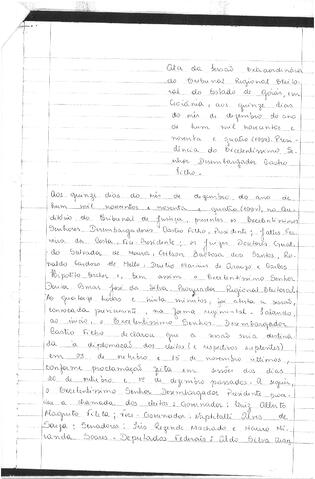 Ata da Sessão Extraordinária
do Tribunal Regional Eleito-
ral do Estado de Goiás, em
Goiânia, aos quinze dias
do mês de dezembro do ano
de hum mil novecentos e
noventa e quatro (1994). Presi-
dência do Excelentíssimo Se-
nhor Desembargador Castro
Filho.
Aos quinze dias do mês de dezembro do ano de
hum mil novecentos e noventa e quatro (1994), no Au-
ditório do Tribunal de Justiça, presentes os Excelentíssimos
Senhores, Desembargadores Castro Filho, Presidente; Jalles Fer-
reira da Costa, Vice-Presidente; os Juízes Doutores
Salvador de Moura, Gelson Barbosa dos Santos, Ro-
naldo de Mello, de Araujo e Carlos
Hipólito, e, bem assim o Excelentíssimo Senhor
José da Silva, Procurador Regional Eleitoral.
Às quatorze horas e trinta minutos, foi aberta a sessão,
convocada, na forma regimental. Saiando
ao início, o Excelentíssimo Senhor Desembargador
Castro Filho declarou que a sessão seria destina-
da a diplomação dos eleitos (e respectivos suplentes)
em 03 de outubro e 15 de novembro últimos,
conforme proclamação feita em sessões dos dias
20 de outubro e 1º de dezembro passados. A seguir,
o Excelentíssimo Senhor Desembargador Presidente proce-
deu a chamada dos eleitos: Governador: Luiz Alberto
Maguito Vilela; Vice-Governador: Naphtalli Alves de
Souza; Senadores: Iris Rezende Machado e Mauro Mi-
randa Soares - Deputados Federais: Aldo Silva